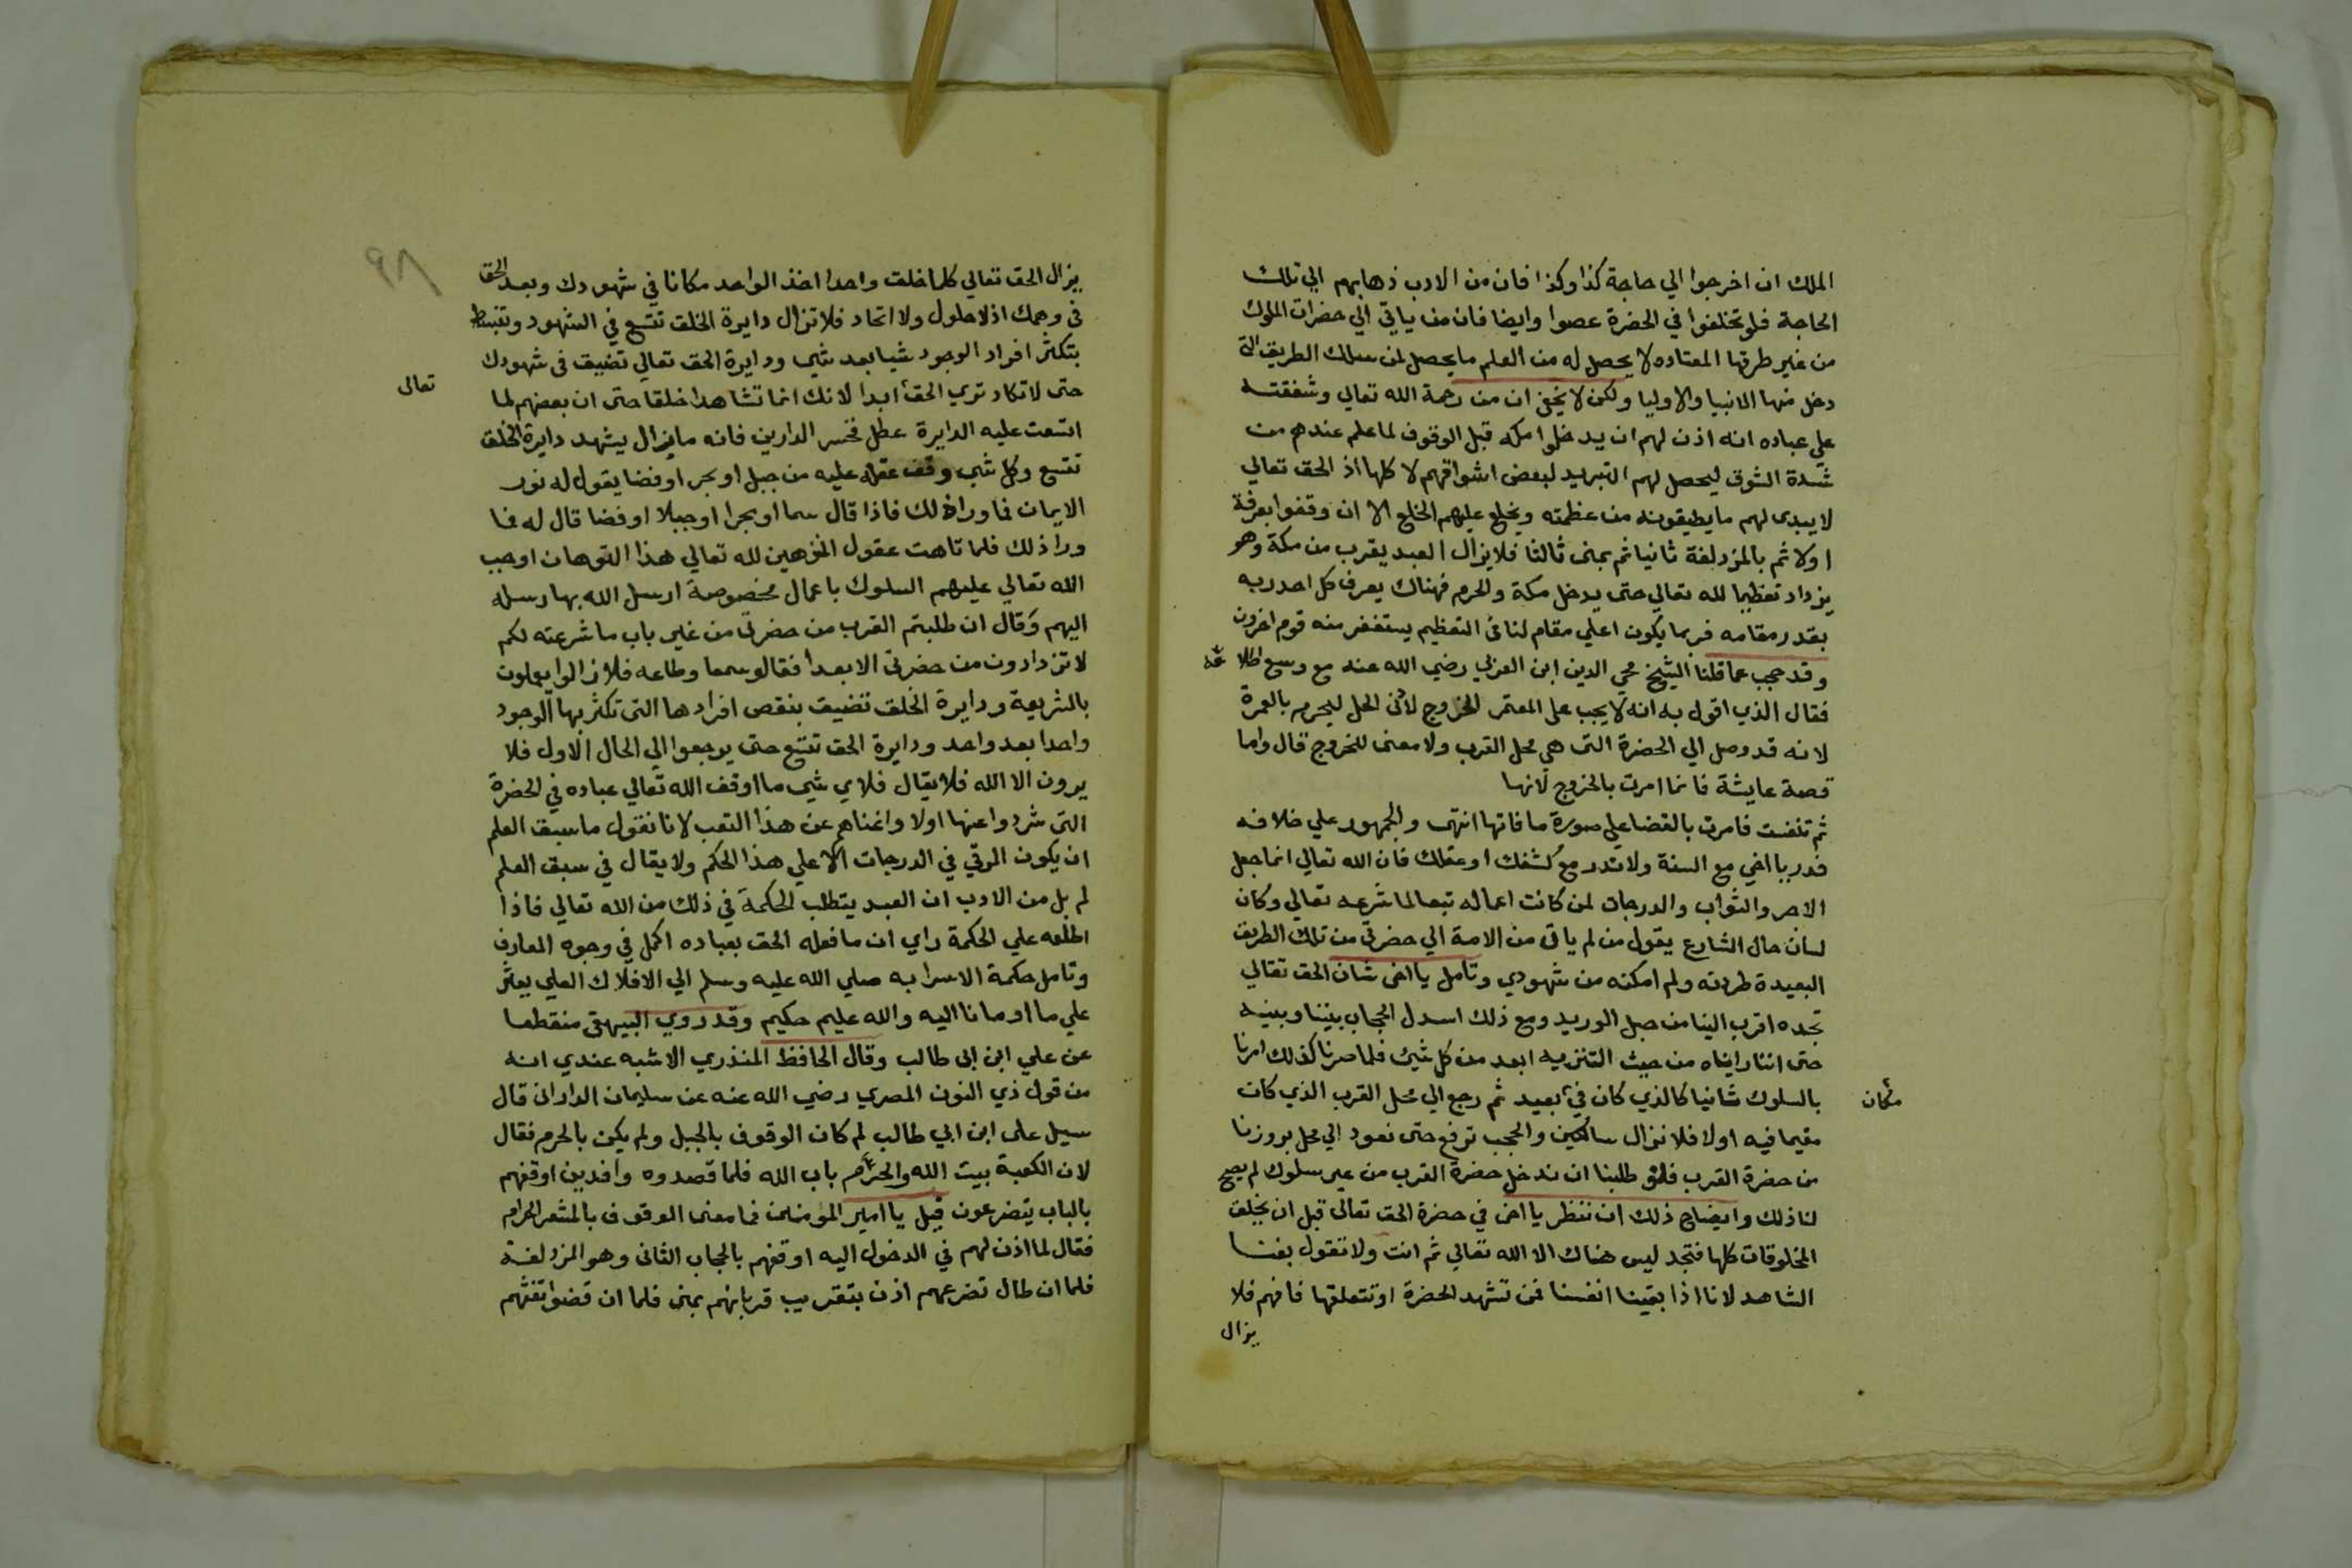 الملك ان اخرجوا الي حاجة كذا وكذا فان من الادب ذهابهم الي تلك
الحاجة فلو تخلفوا في الحضرة عصوا وايضا فان من ياتي الي حضرات الملوك
من غير طرقها المعتاده لا يحصل له من العلم ما يحصل لمن سلك الطريق التي
دخل منها الانبيا والاوليا ولكن لا يخفى ان من رحمة الله تعالي وشفقته
علي عباده انه اذن لهم ان يدخلوا مكه قبل الوقوف لما علم عندهم من
شدة الشوق ليحصل لهم التبريد لبعض اشواقهم لا كلها اذ الحق تعالي
لا يبدى لهم ما يطيقونه من عظمته ويخلع عليهم الخلع الا ان وقفوا بعرفة
اولا ثم بالمزدلفة ثانيا ثم بمنى ثالثا فلا يزال العبد يقرب من مكة وهو
يزداد تعظيما لله تعالي حتى يدخل مكة والحرم فهناك يعرف كل احد ربه
بقدر مقامه فربما يكون اعلي مقام لنا في التعظيم يستغفر منه قوم اخرون
وقد عجب عما قلنا الشيخ محي الدين ابن العربي رضي الله عنه مع وسع اطلا عه
فقال الذي اقول به انه لا يجب على المعتمر الخروج لادنى الحل ليحرم بالعمرة
لانه قد وصل الي الحضرة التى هي محل القرب ولا معنى للخروج قال واما
قصة عايشة فانما امرت بالخروج لانها
ثم تنفست فامرت بالقضا علي صورة ما فاتها انتهى والجمهور علي خلافه
فدر يا اخي مع السنة ولا تدر مع كشفك او عقلك فان الله تعالي انما جعل
الاجر والثواب والدرجات لمن كانت اعماله تبعا لما شرعه تعالي وكان
لسان حال الشارع يقول من لم يات من الامة الي حضرتي من تلك الطريق
البعيدة طردته ولم امكنه من شهودي وتامل يا اخى شان الحق تعالي
تجده اقرب الينا من حبل الوريد ومع ذلك اسدل الحجاب بيننا وبينه
حتى اننا رايناه من حيث التنزيه ابعد من كل شيئ فلما صرنا كذلك امرنا
بالسلوك ثانيا كالذي كان في بعيد ثم رجع الي محل القرب الذي كان
مكان
مقيما فيه اولا فلا نزال سالكين والحجب ترفع حتى نعود الي محل بروزنا
من حضرة القرب فلو طلبنا ان ندخل حضرة القرب من غير سلوك لم يصح
لنا ذلك وايضاح ذلك ان تنظر يا اخى في حضرة الحق تعالى قبل ان يخلق
المخلوقات كلها فتجد ليس هناك الا الله تعالي ثم انت ولا تقول بفنا
الشاهد لانا اذا بقينا انفسنا فمن تشهد الحضرة او تتعلقها فافهم فلا
يزال
٩٨
يزال الحق تعالي كلما خلق واحدا اخذ الواحد مكانا في شهودك وبعد الحق
في وهمك اذ لا حلول ولا اتحاد فلا تزال دايرة الخلق تتسع في الشهود وتنبسط
بتكثر افراد الوجود شيا بعد شي ودايرة الحق تعالي تضيق في شهودك
حتى لا تكاد تري الحق ابدا لانك انما تشاهد خلقا حتى ان بعضهم لما
تعالى
اتسعت عليه الدايرة عطل فخسر الدارين فانه ما يزال يشهد دايرة الخلق
تتسع وكل شي وقف عقله عليه من جبل او بحر او فضا يقول له نور
الايمان فما ورا ذلك فاذا قال سما او بحرا او جبلا او فضا قال له فما
ورا ذلك فلما تاهت عقول المتوهين لله تعالي هذا التوهان اوجب
الله تعالي عليهم السلوك باعمال مخصوصة ارسل الله بها رسله
اليهم وقال ان طلبتم القرب من حضرتي من غير باب ما شرعته لكم
لا تزدادون من حضرتي الا بعدا فقالو سمعا وطاعه فلا زالوا يعملون
بالشريعة ودايرة الخلق تضيق بنقص افرادها التى تكثر بها الوجود
واحدا بعد واحد ودايرة الحق تتسع حتى يرجعوا الي الحال الاول فلا
يرون الا الله فلا يقال فلاي شي ما اوقف الله تعالي عباده في الحضرة
التى شردوا عنها اولا واغناهم عن هذا التعب لانا نقول ما سبق العلم
ان يكون الرقي في الدرجات الا علي هذا الحكم ولا يقال في سبق العلم
لم بل من الادب ان العبد يتطلب الحكمة في ذلك من الله تعالي فاذا
اطلعه علي الحكمة راي ان ما فعله الحق بعباده اكمل في وجوه المعارف
وتامل حكمة الاسرا به صلي الله عليه وسلم الي الافلاك العلي يعثر
علي ما اومانا اليه والله عليم حكيم وقد روي البيهقى منقطعا
عن علي ابن ابى طالب وقال الحافظ المنذري الاشبه عندي انه
من قول ذي النون المصري رضي الله عنه عن سليمان الدارانى قال
سيل على ابن ابي طالب لم كان الوقوف بالجبل ولم يكن بالحرم فقال
لان الكعبة بيت الله والحرم باب الله فلما قصدوه وافدين اوقفهم
بالباب يتضرعون قيل يا امير المومنين فما معنى الوقوف بالمشعر الحرام
فقال لما اذن لهم في الدخول اليه اوقفهم بالحجاب الثانى وهو المزدلفة
فلما ان طال تضرعهم اذن بتقريب قربانهم بمنى فلما ان قضوا تفثهم